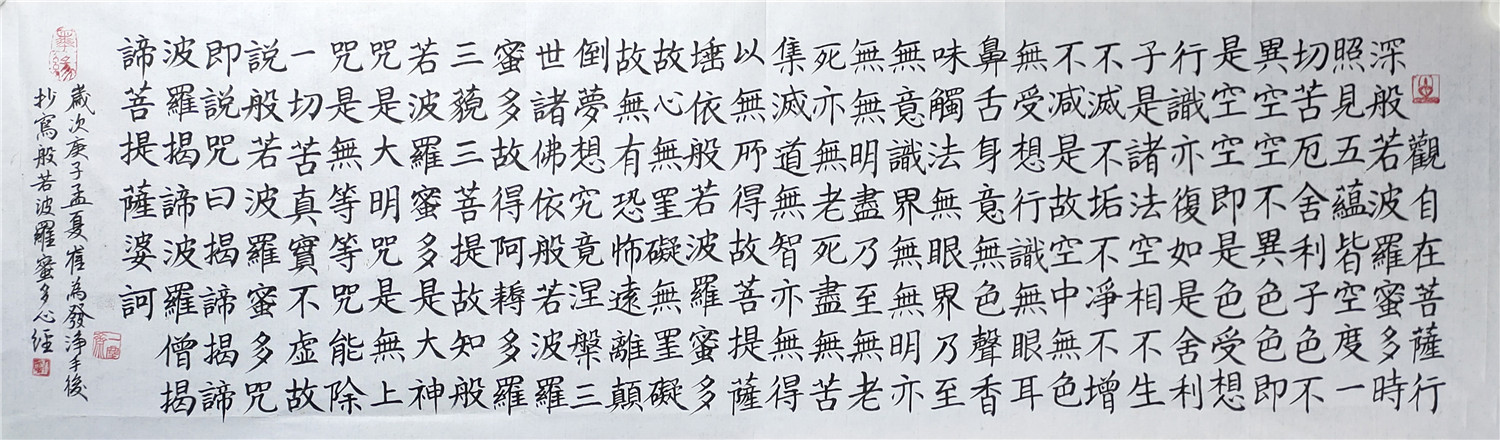 觀自在菩薩行
深般若波羅蜜多時
照見五蘊皆空度一
切苦厄舍利子色不
異空空不異色色即
是空空即是色受想
行識亦復如是舍利
子是諸法空相不生
不滅不垢不凈不增
不减是故空中無色
無受想行識無眼耳
鼻舌身意無色聲香
味觸法無眼界乃至
無意識界無無明亦
無無明盡乃至無老
死亦無老死盡無苦
集滅道無智亦無得
以無所得故菩提薩
埵依般若波羅蜜多
故心無罣礙無罣礙
故無有恐怖遠離顛
倒夢想究竟涅槃三
世諸佛依般若波羅
蜜多故得阿耨多羅
三藐三菩提故知般
若波羅蜜多是大神
咒是大明咒是無上
咒是無等等咒能除
一切苦真實不虚故
說般若波羅蜜多咒
即說咒曰揭諦揭諦
波羅揭諦波羅僧揭
諦菩提薩婆訶
歲次庚子孟夏崔為發淨手後
抄寫般若波羅蜜多心經